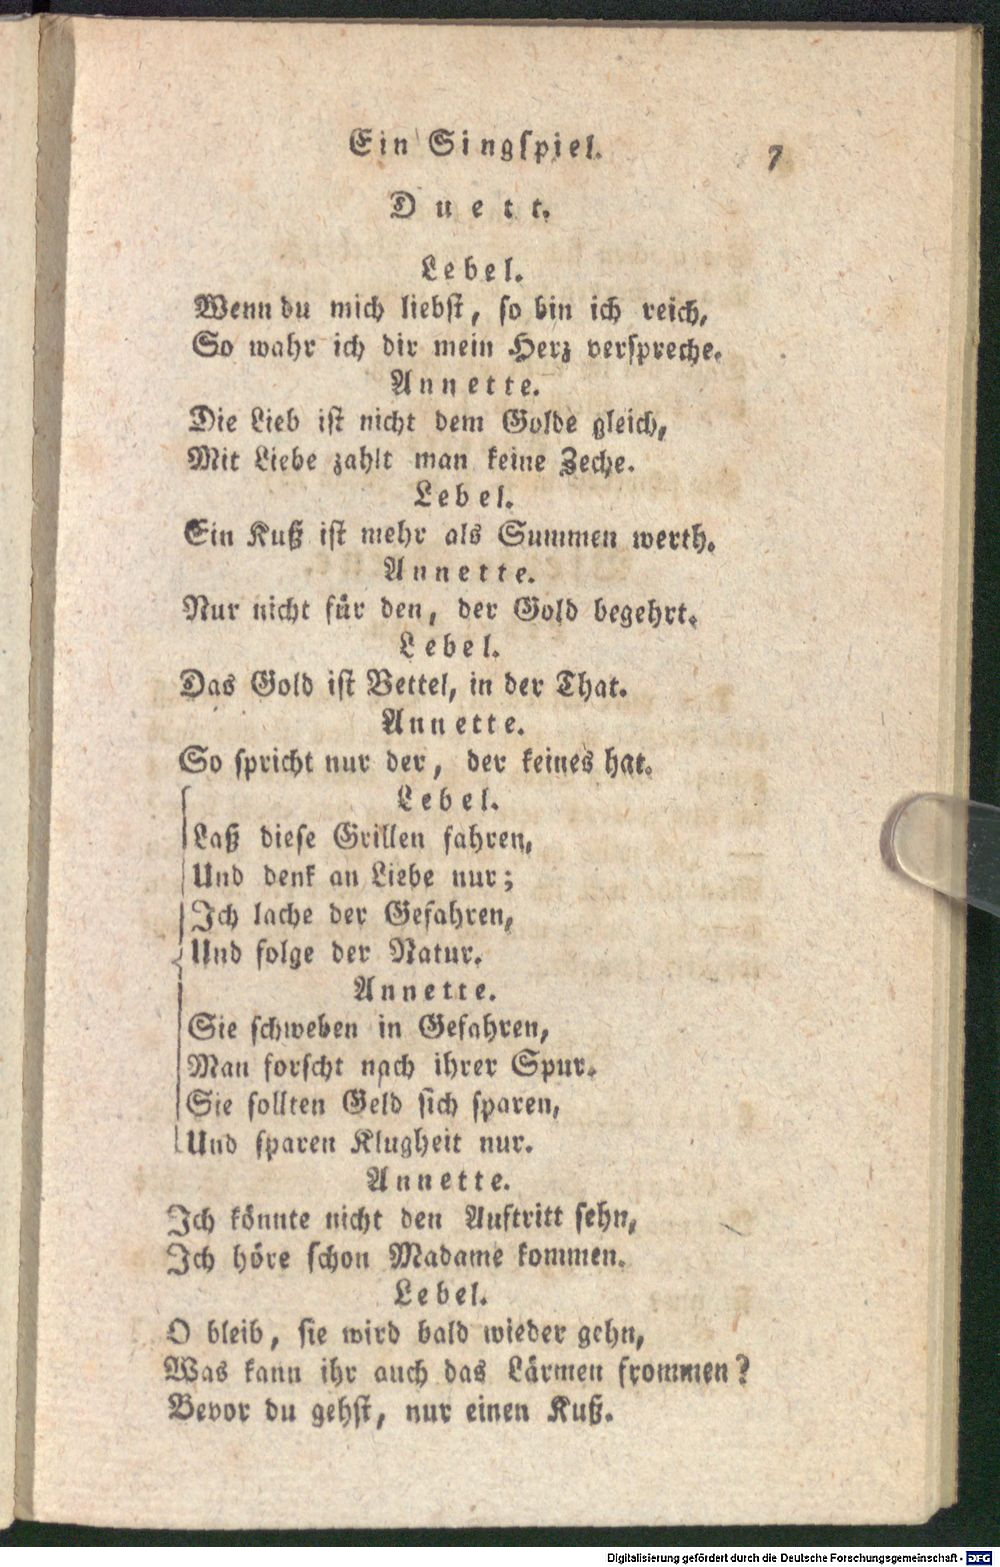 Ein Singspiel. 7
Duett.
Lebel.
Wenn du mich liebst, so bin ich reich,
So wahr ich dir mein Herz verspreche.
Annette.
Die Lieb ist nicht dem Golde gleich,
Mit Liebe zahlt man keine Zeche.
Lebel.
Ein Kuß ist mehr als Summen werth.
Annette.
Nur nicht für den, der Gold begehrt.
Lebel.
Das Gold ist Bettel, in der That.
Annette.
So spricht nur der, der keines hat.
Lebel.
Laß diese Grillen fahren,
Und denk an Liebe nur;
Ich lache der Gefahren,
Und folge der Natur.
Annette.
Sie schweben in Gefahren,
Man forscht nach ihrer Spur.
Sie sollten Geld sich sparen,
Und sparen Klugheit nur.
Annette.
Ich könnte nicht den Auftritt sehn,
Ich höre schon Madame kommen.
Lebel.
O bleib, sie wird bald wieder gehn,
Was kann ihr auch das Lärmen frommen?
Bevor du gehst, nur einen Kuß.
Digitalisierung gefördert durch die Deutsche Forschungsgemeinschaft - DFG